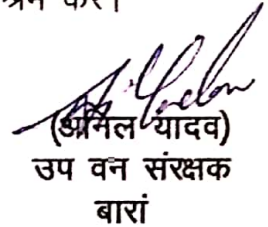 करें।
(अनिल यादव)
उप वन संरक्षक
बारां